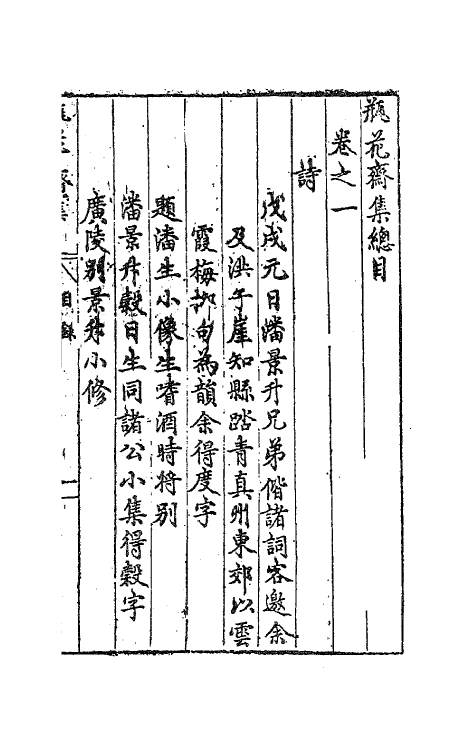 瓶花齋集總目
卷之一
詩
戊戌元日潘景升兄弟偕諸詞客邀余
及洪子崖知縣踏青真州東郊以雲
霞梅柳句為韻余得度字
題潘生小像生嗜酒時將别
潘景升穀日生同諸公小集得穀字
廣陵别景升小修
目錄
一